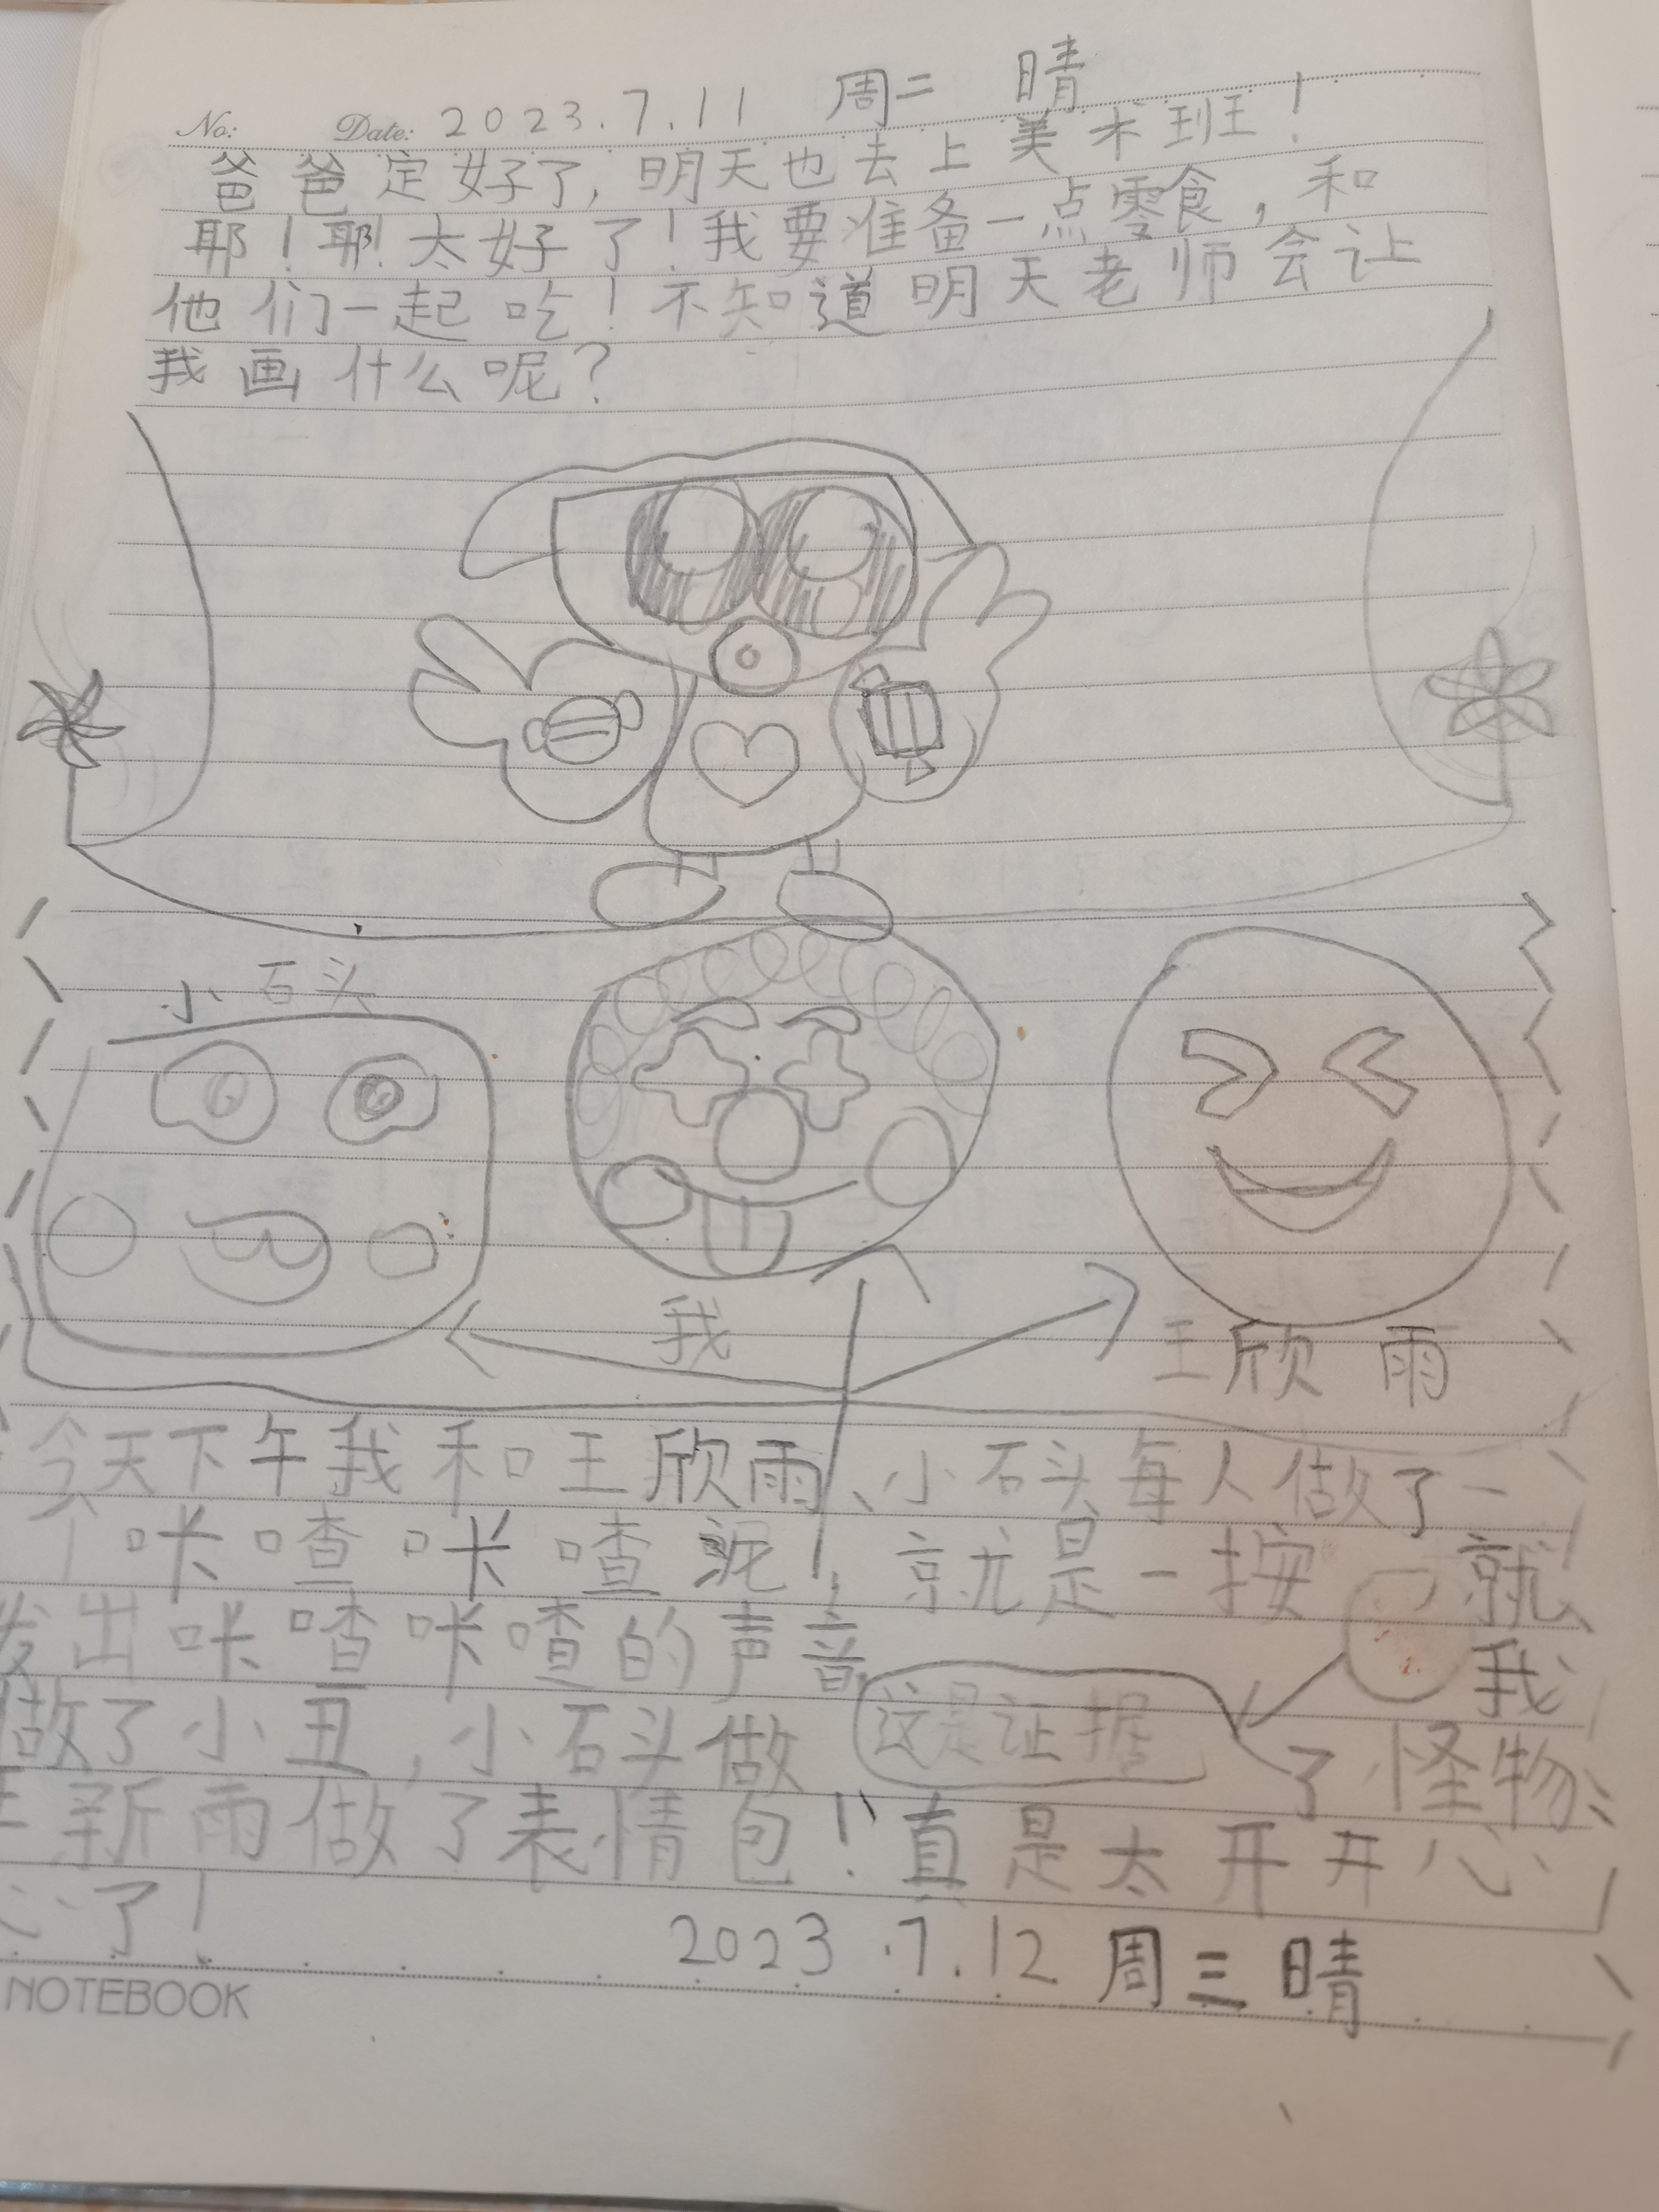 No: Date: 2023.7.11 周二 晴
爸爸定好了，明天也去上美术班！
耶！耶！太好了！我要准备一点零食，和
他们一起吃！不知道明天老师会让
我画什么呢？
小石头
我
王欣雨
今天下午我和王欣雨、小石头每人做了一
个咔喳咔喳泥，就是一按就
发出咔喳咔喳的声音
我
这是证据
做了小丑，小石头做了怪物，
新雨做了表情包！真是太开开心
心了！
2023.7.12 周三 晴
NOTEBOOK